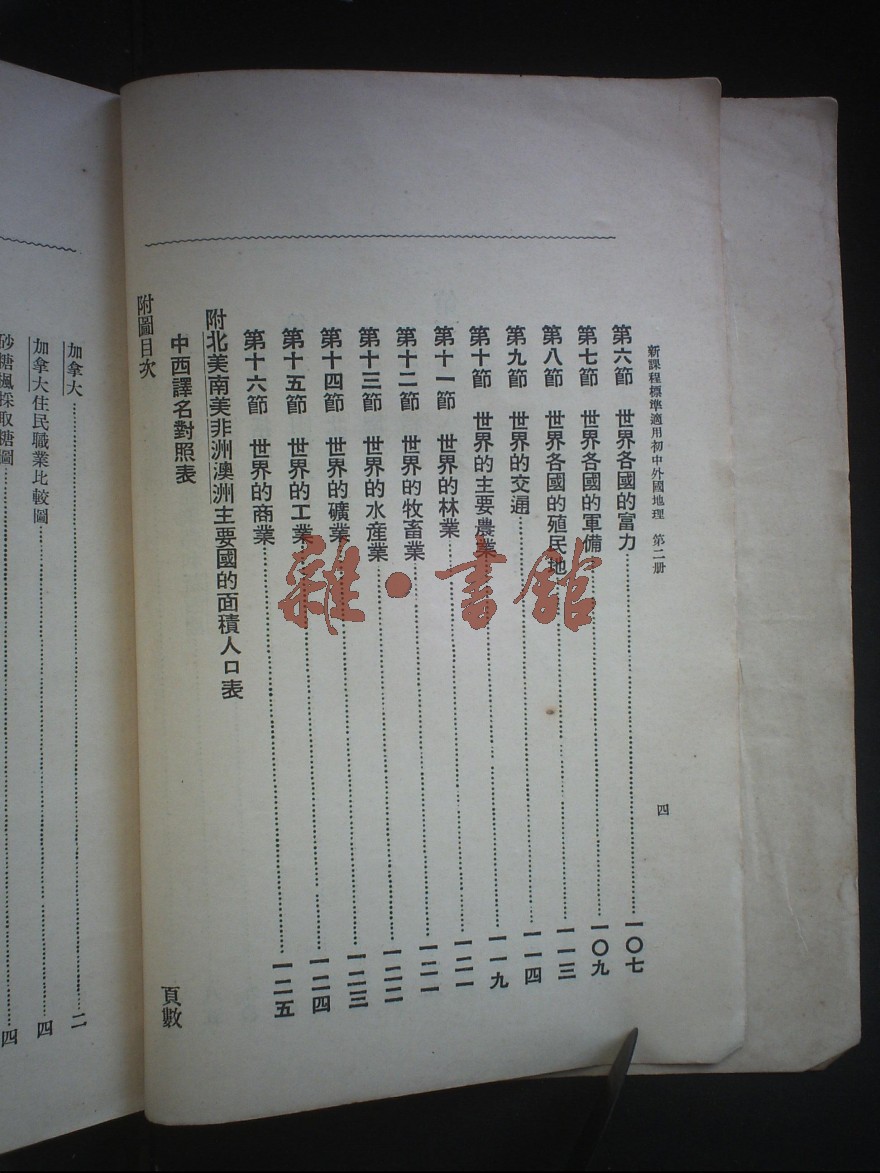 新課程標準適用初中外國地理　第二册
四
第六節　世界各國的富力…………一〇七
第七節　世界各國的軍備…………一〇九
第八節　世界各國的殖民地…………一一三
第九節　世界的交通…………一一四
第十節　世界的主要農業…………一一九
第十一節　世界的林業…………一二一
第十二節　世界的牧畜業…………一二一
第十三節　世界的水產業…………一二二
第十四節　世界的礦業…………一二三
第十五節　世界的工業…………一二四
第十六節　世界的商業…………一二五
附北美南美非洲澳洲主要國的面積人口表
中西譯名對照表
附圖目次　頁數
加拿大…………二
加拿大住民職業比較圖…………四
砂糖楓採取糖圖…………四
雜·書館